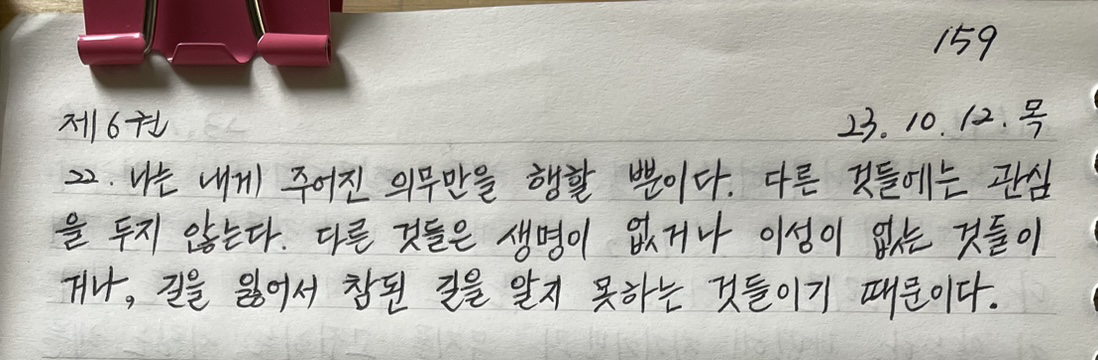 159
제6권 23. 10. 12. 목
22. 나는 내게 주어진 의무만을 행할 뿐이다. 다른 것들에는 관심
을 두지 않는다. 다른 것들은 생명이 없거나 이성이 없는 것들이
거나, 길을 잃어서 참된 길을 알지 못하는 것들이기 때문이다.